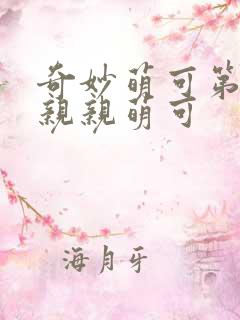 奇妙萌可第
親親萌可
海月牙